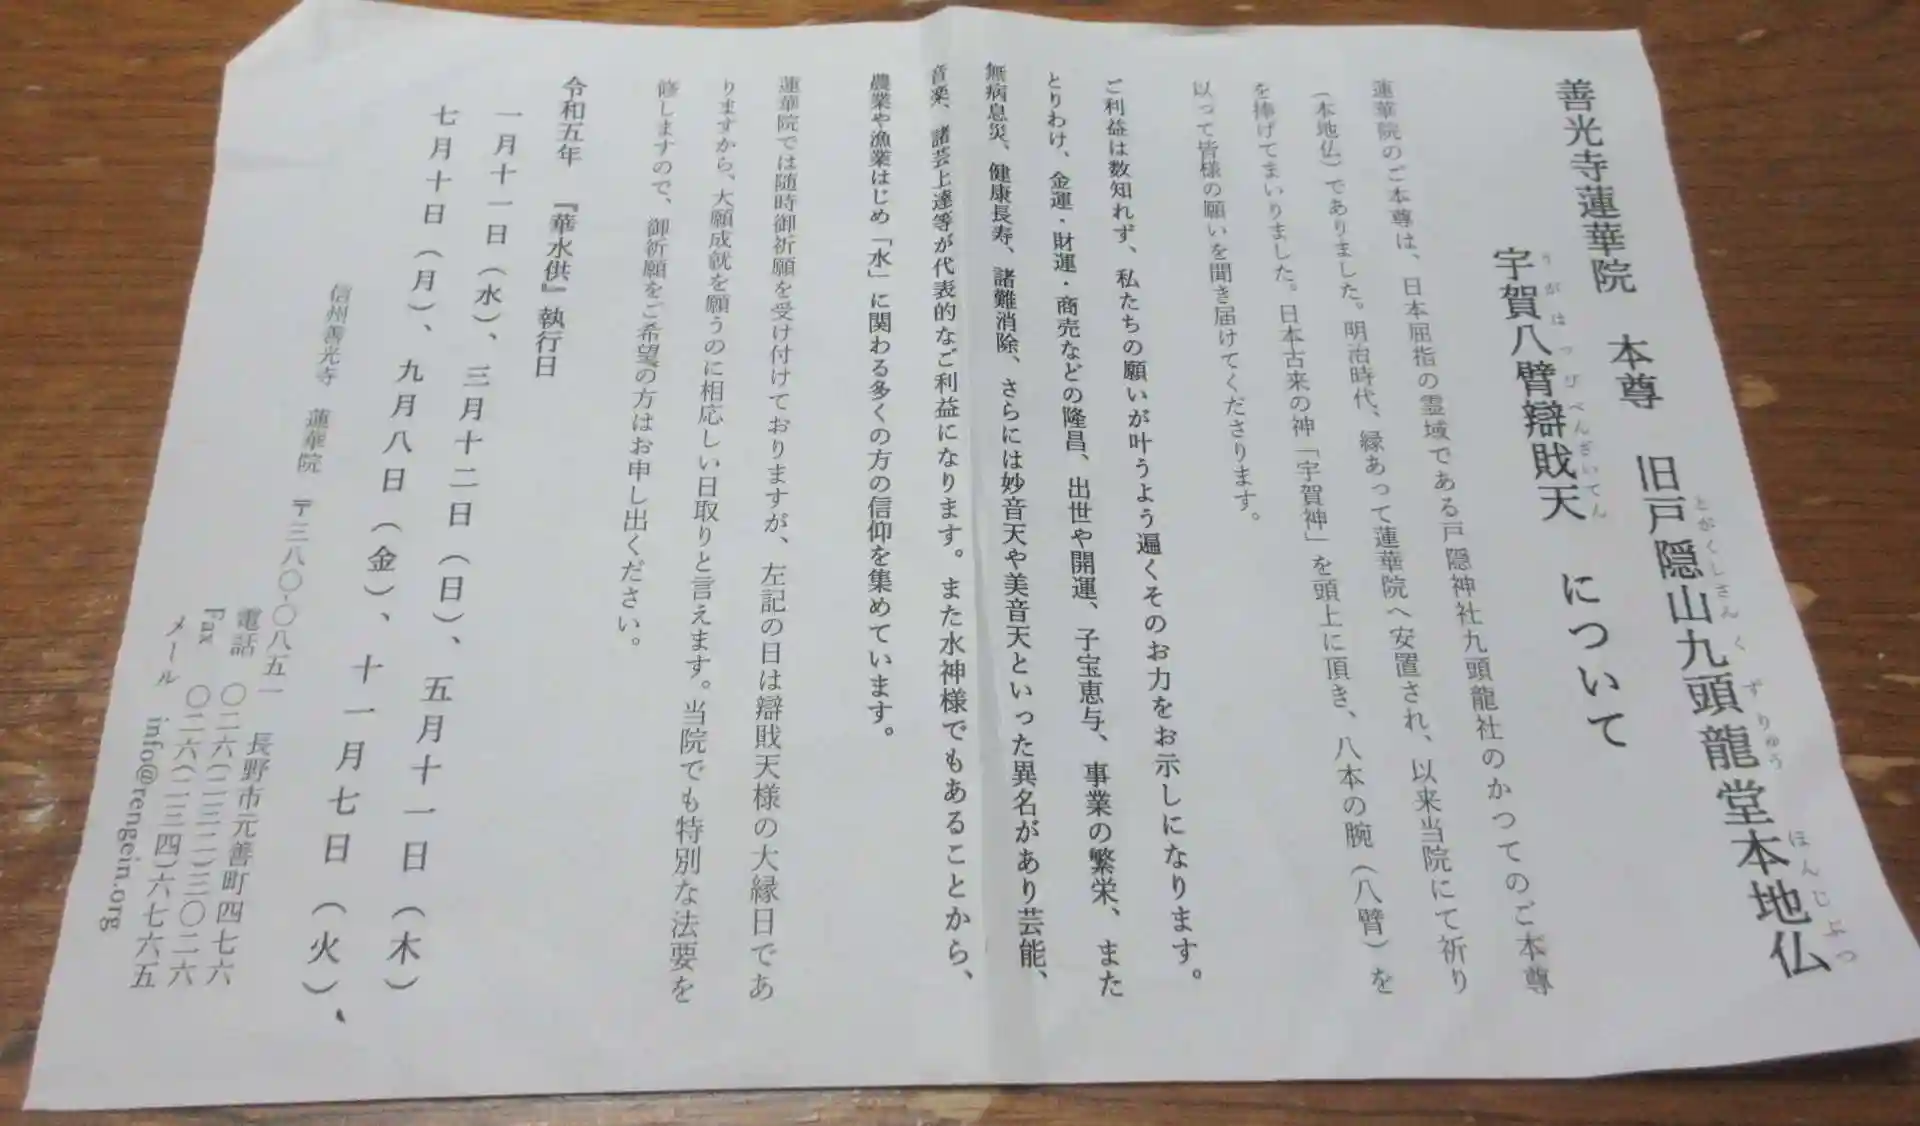 善光寺蓮華院 本尊 旧戸隠山九頭龍堂本地仏
とがくしさんくずりゅう ほんじぶつ
宇賀八臂辯戝天 について
うがはっぴべんざいてん
蓮華院のご本尊は、日本屈指の霊域である戸隠神社九頭龍社のかつてのご本尊
(本地仏)でありました。明治時代、縁あって蓮華院へ安置され、以来当院にて祈り
を捧げてまいりました。日本古来の神「宇賀神」を頭上に頂き、八本の腕(八臂)を
以って皆様の願いを聞き届けてくださります。
ご利益は数知れず、私たちの願いが叶うよう遍くそのお力をお示しになります。
とりわけ、金運・財運・商売などの隆昌、出世や開運、子宝恵与、事業の繁栄、また
無病息災、健康長寿、諸難消除、さらには妙音天や美音天といった異名があり芸能、
音楽、諸芸上達等が代表的なご利益になります。また水神様でもあることから、
農業や漁業はじめ「水」に関わる多くの方の信仰を集めています。
蓮華院では随時御祈願を受け付けておりますが、左記の日は辯戝天様の大縁日であ
りますから、大願成就を願うのに相応しい日取りと言えます。当院でも特別な法要を
修しますので、御祈願をご希望の方はお申し出ください。
令和五年 『華水供』執行日
一月十一日(水)、三月十二日(日)、五月十一日(木)
七月十日(月)、九月八日(金)、十一月七日(火)、
信州善光寺 蓮華院 〒三八〇-〇八五一 長野市元善町四七六
電話 〇二六(二三二)三〇二六
Fax 〇二六(二三四)六七六五
メール info@rengein.org